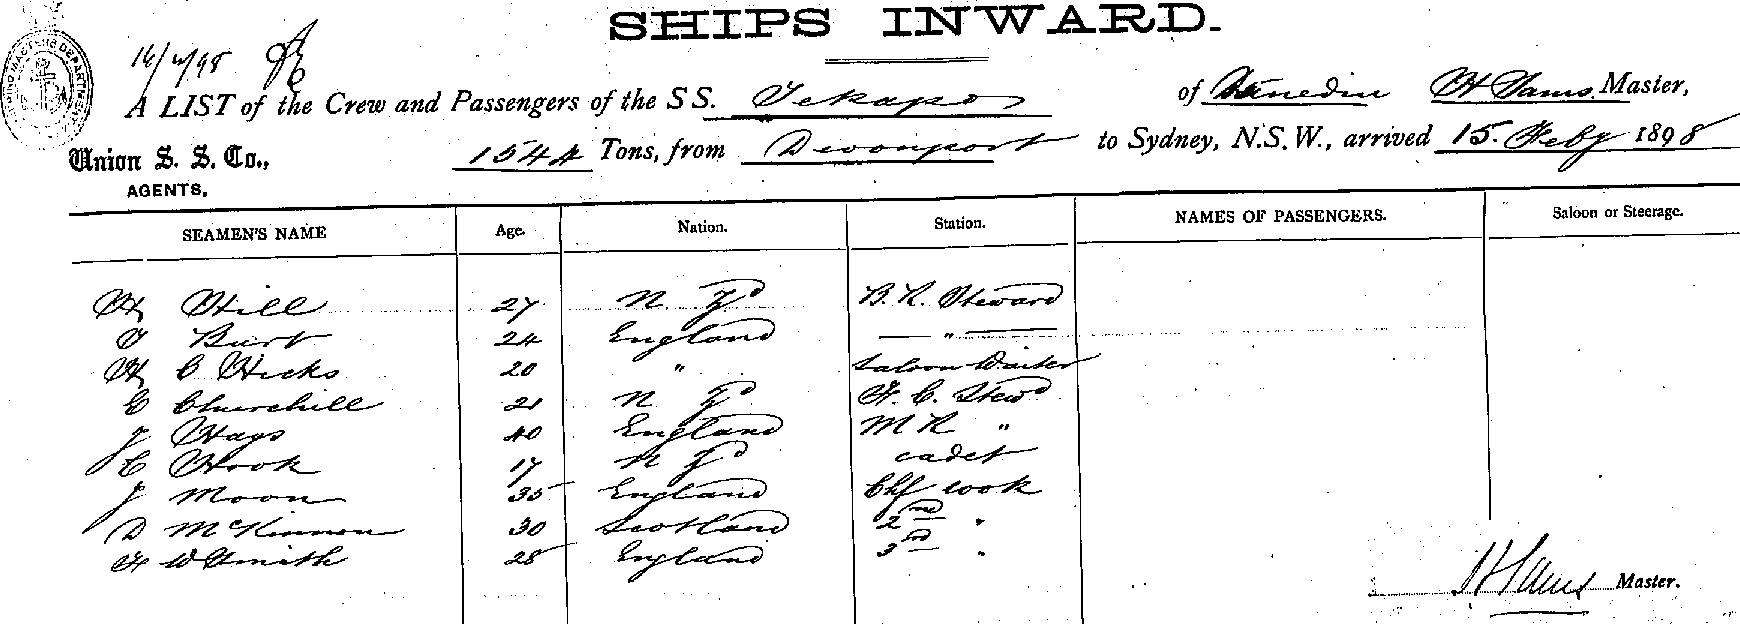 SHIPS INWARD.
16/2/98
A LIST of the Crew and Passengers of the S S. Tekapo of Dunedin, Master,
Union S. S. Co., 1544 Tons, from Devonport to Sydney, N.S.W., arrived 15. Feby 1898
AGENTS.
SEAMEN'S NAME Age. Nation. Station. NAMES OF PASSENGERS. Saloon or Steerage.
H Hill 27 N Zd B. R. Steward
T Burt 24 England — " —
H C Hicks 20 " Saloon Waiter
E Churchill 21 N Zd F. C. Stewd
J Hays 40 England M R "
C Hook 17 N Zd cadet
J Moon 35 England Chf cook
D McKinnon 30 Scotland 2nd "
F W Smith 28 England 3rd "
Master.